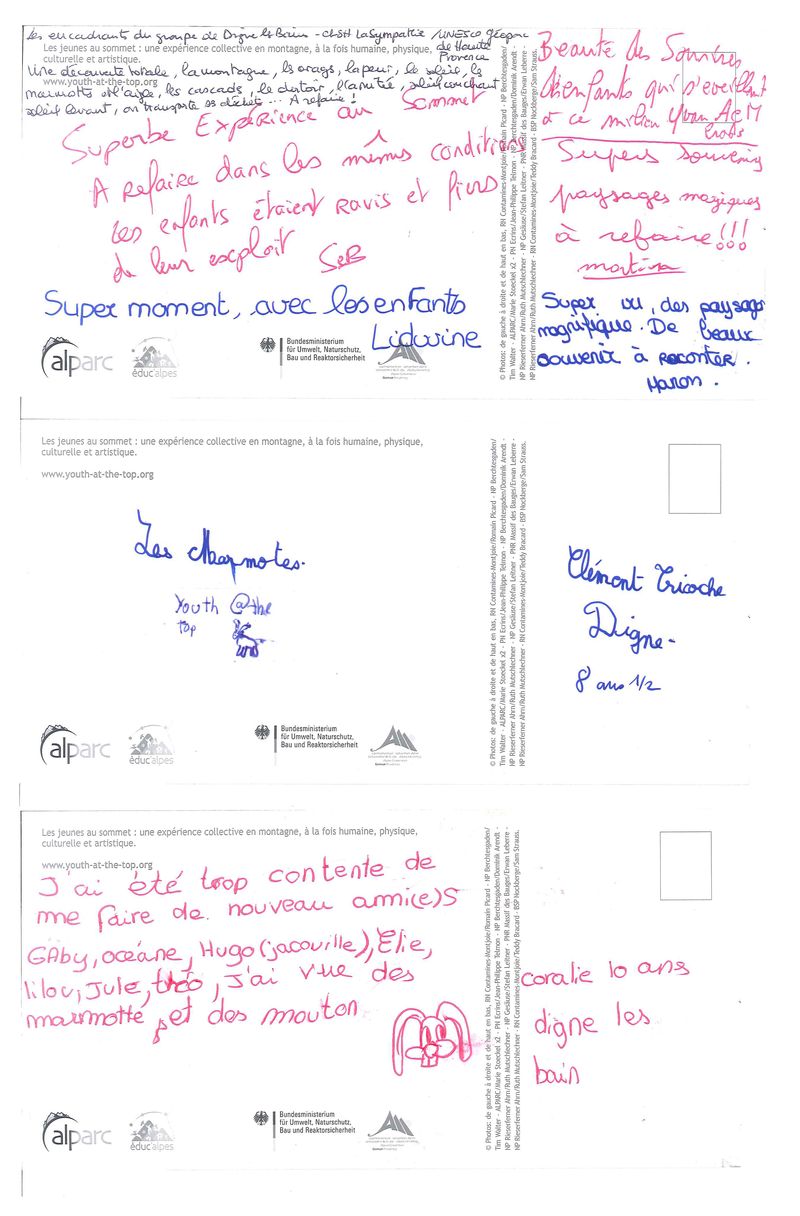 Les encadrants du groupe de Digne les Bains - CLSH La Sympathie /UNESCO Géoparc de Haute Provence
Les jeunes au sommet : une expérience collective en montagne, à la fois humaine, physique,
culturelle et artistique.
Une découverte totale, la montagne, les orages, la peur, le soleil, les
www.youth-at-the-top.org
marmottes et l'aigle, les cascades, le dortoir, l'amitié, soleil couchant
soleil levant, on transporte ses déchets ... A refaire !
Superbe Expérience au Sommet
A Refaire dans les mêmes conditions
Les enfants étaient Ravis et fiers
de leur exploit SeB
Super moment, avec les enfants
Lidwine
alparc
éduc'alpes
Bundesministerium
für Umwelt, Naturschutz,
Bau und Reaktorsicherheit
© Photos: de gauche à droite et de haut en bas, RN Contamines-Montjoie/Romain Picard - NP Berchtesgaden/
Tim Walter - ALPARC/Marie Stoeckel x2 - PN Ecrins/Jean-Philippe Telmon - NP Berchtesgaden/Dominik Arendt -
NP Rieserferner Ahrn/Ruth Mutschlechner - NP Gesäuse/Stefan Leitner - PNR Massif des Bauges/Erwan Leberre -
NP Rieserferner Ahrn/Ruth Mutschlechner - RN Contamines-Montjoie/Teddy Bracard - BSP Nockberge/Sam Strauss.
Beauté des Sourires
d'enfants qui s'eveillent
à ce milieu Yvan AeM
Crots
Supers souvenirs
paysages magiques
à refaire!!!
martine
Super vu, des paysage
magnifique. De beaux
souvenir à raconter.
Manon.
Les jeunes au sommet : une expérience collective en montagne, à la fois humaine, physique,
culturelle et artistique.
www.youth-at-the-top.org
Les Marmotes.
Youth @the
top
alparc
éduc'alpes
Bundesministerium
für Umwelt, Naturschutz,
Bau und Reaktorsicherheit
© Photos: de gauche à droite et de haut en bas, RN Contamines-Montjoie/Romain Picard - NP Berchtesgaden/
Tim Walter - ALPARC/Marie Stoeckel x2 - PN Ecrins/Jean-Philippe Telmon - NP Berchtesgaden/Dominik Arendt -
NP Rieserferner Ahrn/Ruth Mutschlechner - NP Gesäuse/Stefan Leitner - PNR Massif des Bauges/Erwan Leberre -
NP Rieserferner Ahrn/Ruth Mutschlechner - RN Contamines-Montjoie/Teddy Bracard - BSP Nockberge/Sam Strauss.
Clémont Tricoche
Digne-
8 ans 1/2
Les jeunes au sommet : une expérience collective en montagne, à la fois humaine, physique,
culturelle et artistique.
www.youth-at-the-top.org
J'ai été trop contente de
me faire de nouveau ami(e)s
GAby, océane, Hugo(jacouille), Elie,
lilou, Jule, théo, J'ai vue des
marmotte et des mouton
alparc
éduc'alpes
Bundesministerium
für Umwelt, Naturschutz,
Bau und Reaktorsicherheit
© Photos: de gauche à droite et de haut en bas, RN Contamines-Montjoie/Romain Picard - NP Berchtesgaden/
Tim Walter - ALPARC/Marie Stoeckel x2 - PN Ecrins/Jean-Philippe Telmon - NP Berchtesgaden/Dominik Arendt -
NP Rieserferner Ahrn/Ruth Mutschlechner - NP Gesäuse/Stefan Leitner - PNR Massif des Bauges/Erwan Leberre -
NP Rieserferner Ahrn/Ruth Mutschlechner - RN Contamines-Montjoie/Teddy Bracard - BSP Nockberge/Sam Strauss.
coralie 10 ans
digne les
bain